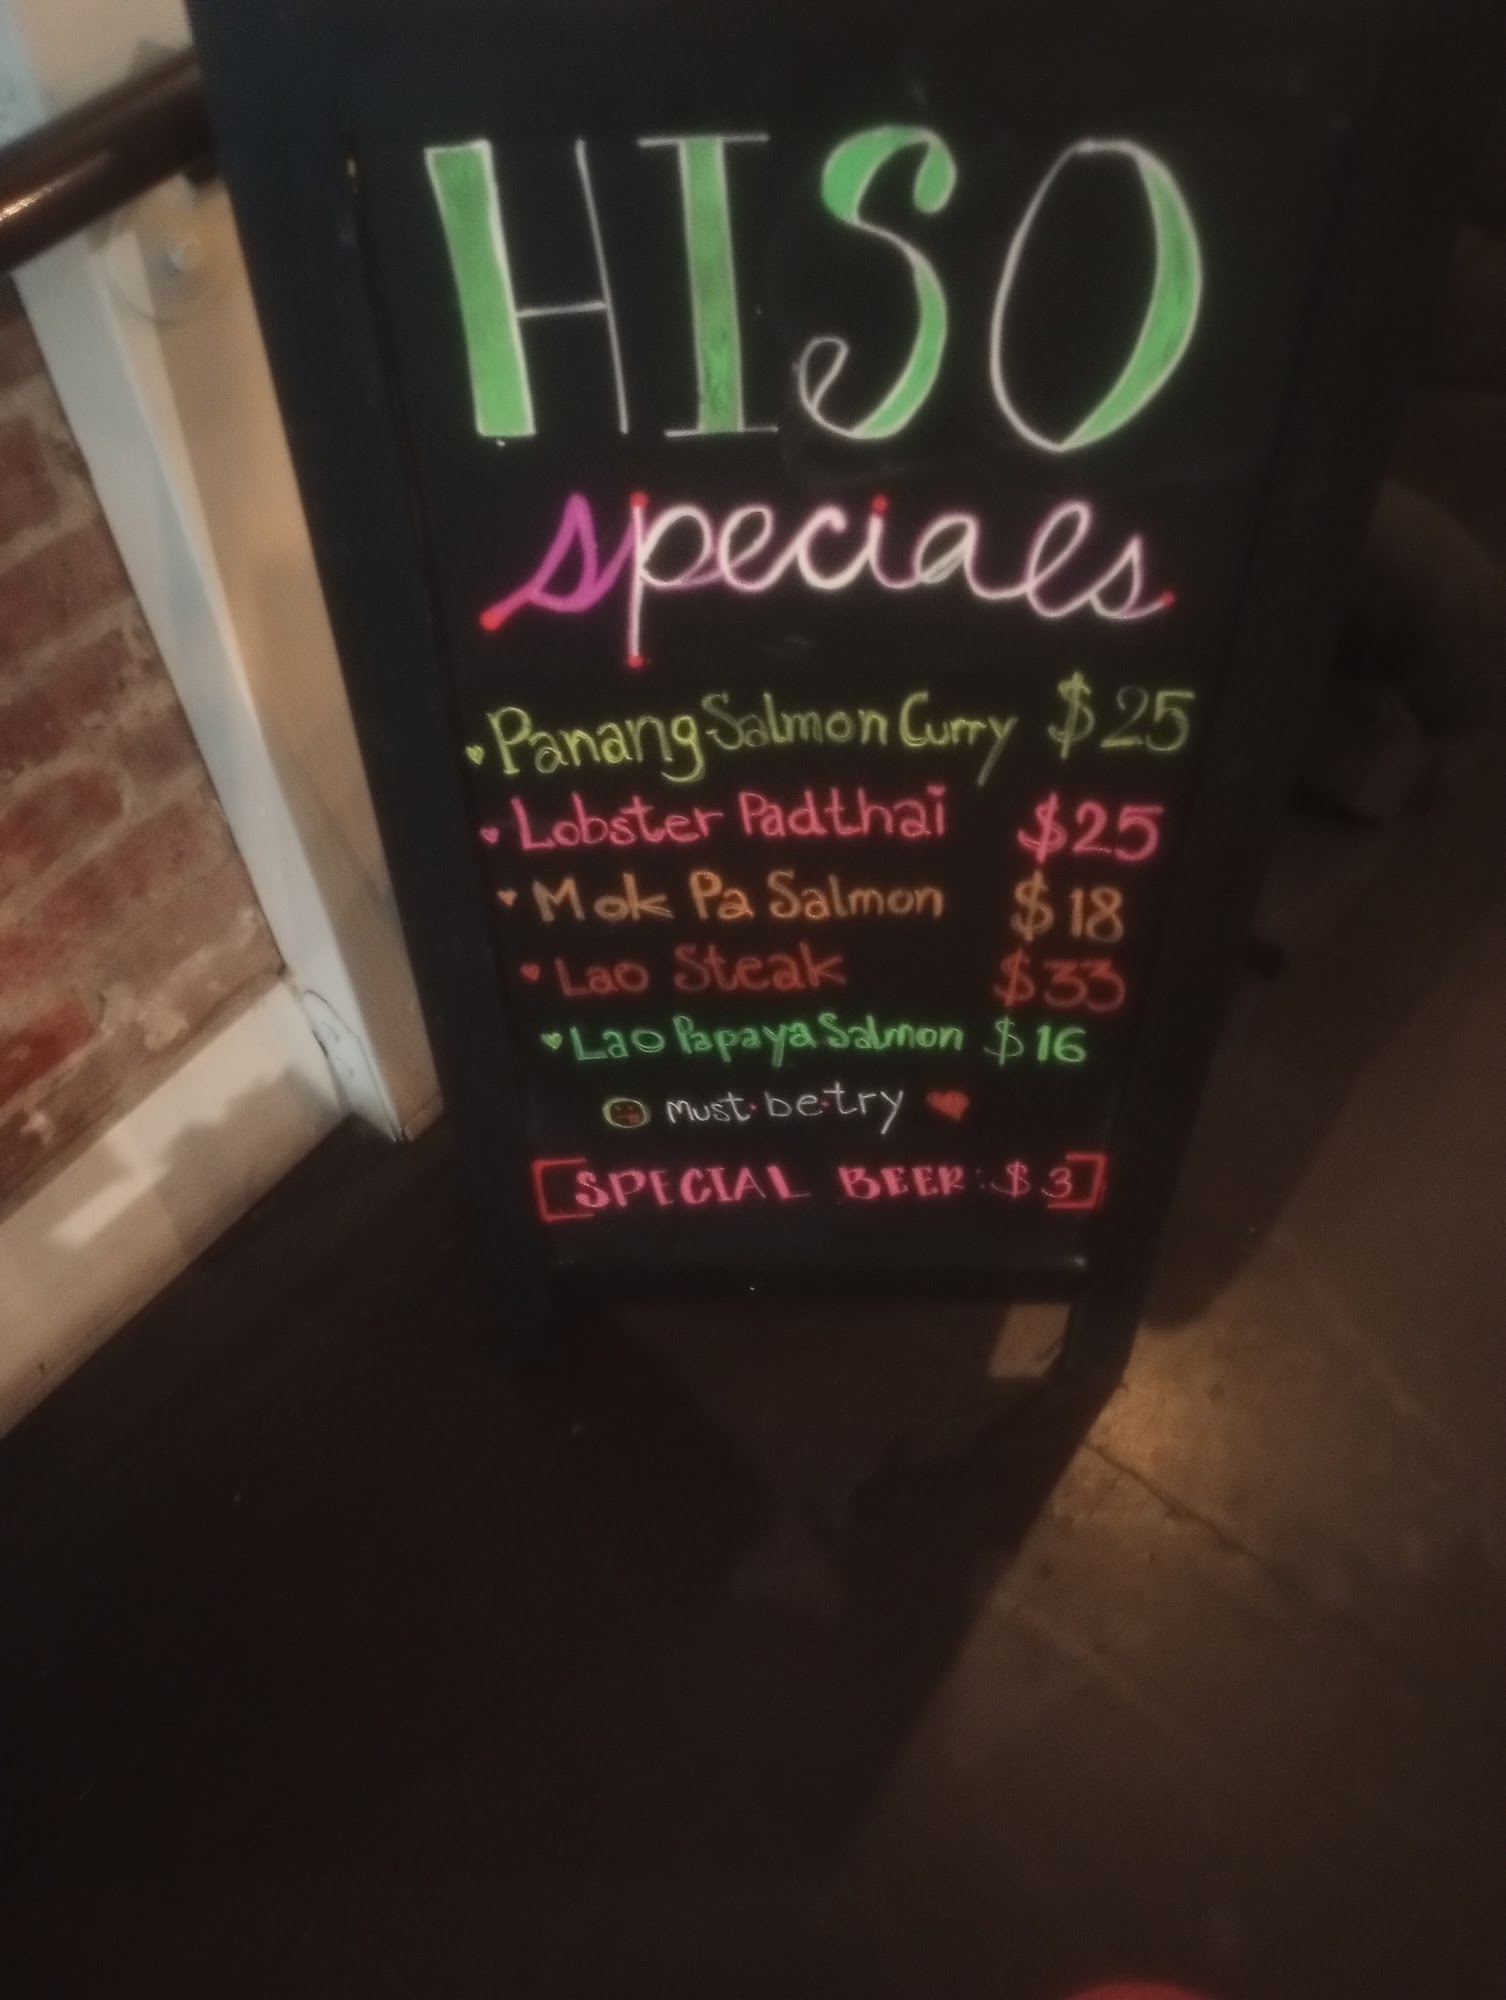 HISO
specials
Panang Salmon Curry $25
Lobster Padthai $25
Mok Pa Salmon $18
Lao Steak $33
Lao Papaya Salmon $16
must·be·try
[SPECIAL BEER: $3]